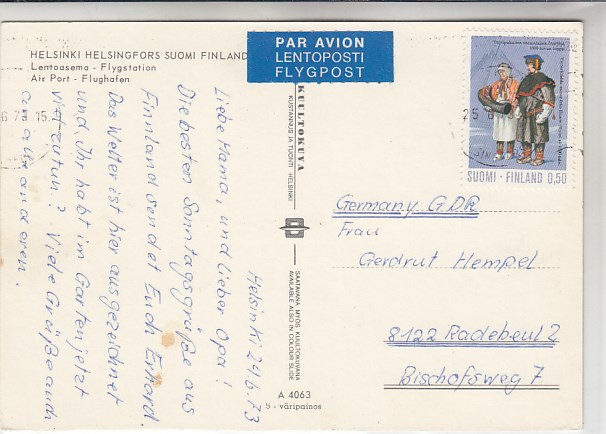 HELSINKI HELSINGFORS SUOMI FINLAND
Lentoasema - Flygstation
Air Port - Flughafen
PAR AVION
LENTOPOSTI
FLYGPOST
SUOMI - FINLAND 0,50
KUULTOKUVA
KUSTANNUS JA TUONTI HELSINKI
SAATAVANA MYÖS KUULTOKUVANA
AVAILABLE ALSO IN COLOUR SLIDE
A 4063
5 - väripainos
Helsinki 24.6.73
Liebe Mama, und lieber Opa!
Die besten Sonntagsgrüße aus
Finnland sendet Euch
Das Wetter ist hier ausgezeichnet
und Ihr habt im Garten jetzt
viel zu tun? Viele Grüße auch
an alle anderen!
Germany GDR
Frau
Gerdrut Hempel
8122 Radebeul 2
Bischofsweg 7